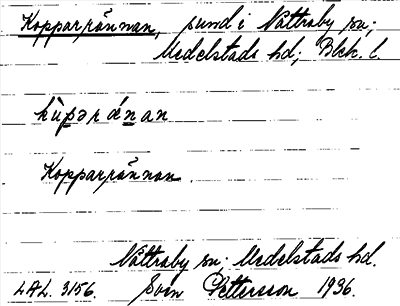 Kopparrännan, sund i Nättraby sn;
Medelstads hd; Blek. l.
kùpərǽnan
Kopparrännan.
Nättraby sn; Medelstads hd.
LAL. 3156. Sven Pettersson 1936.